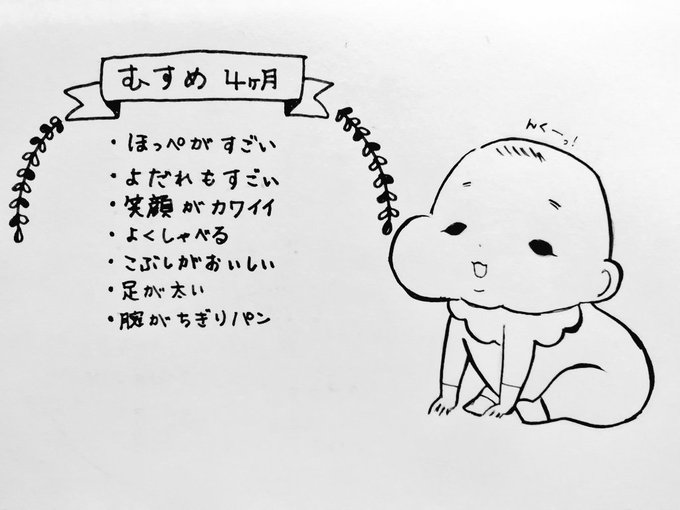 むすめ 4ヶ月
・ほっぺがすごい
・よだれもすごい
・笑顔がカワイイ
・よくしゃべる
・こぶしがおいしい
・足が太い
・腕がちぎりパン
んくーっ!